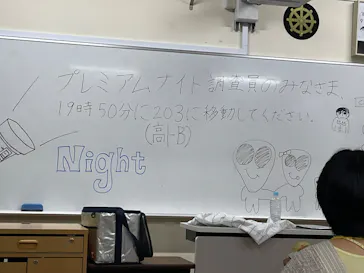 プレミアムナイト調査員のみなさま、
19時50分に203に移動してください。
(高1-B)
Night